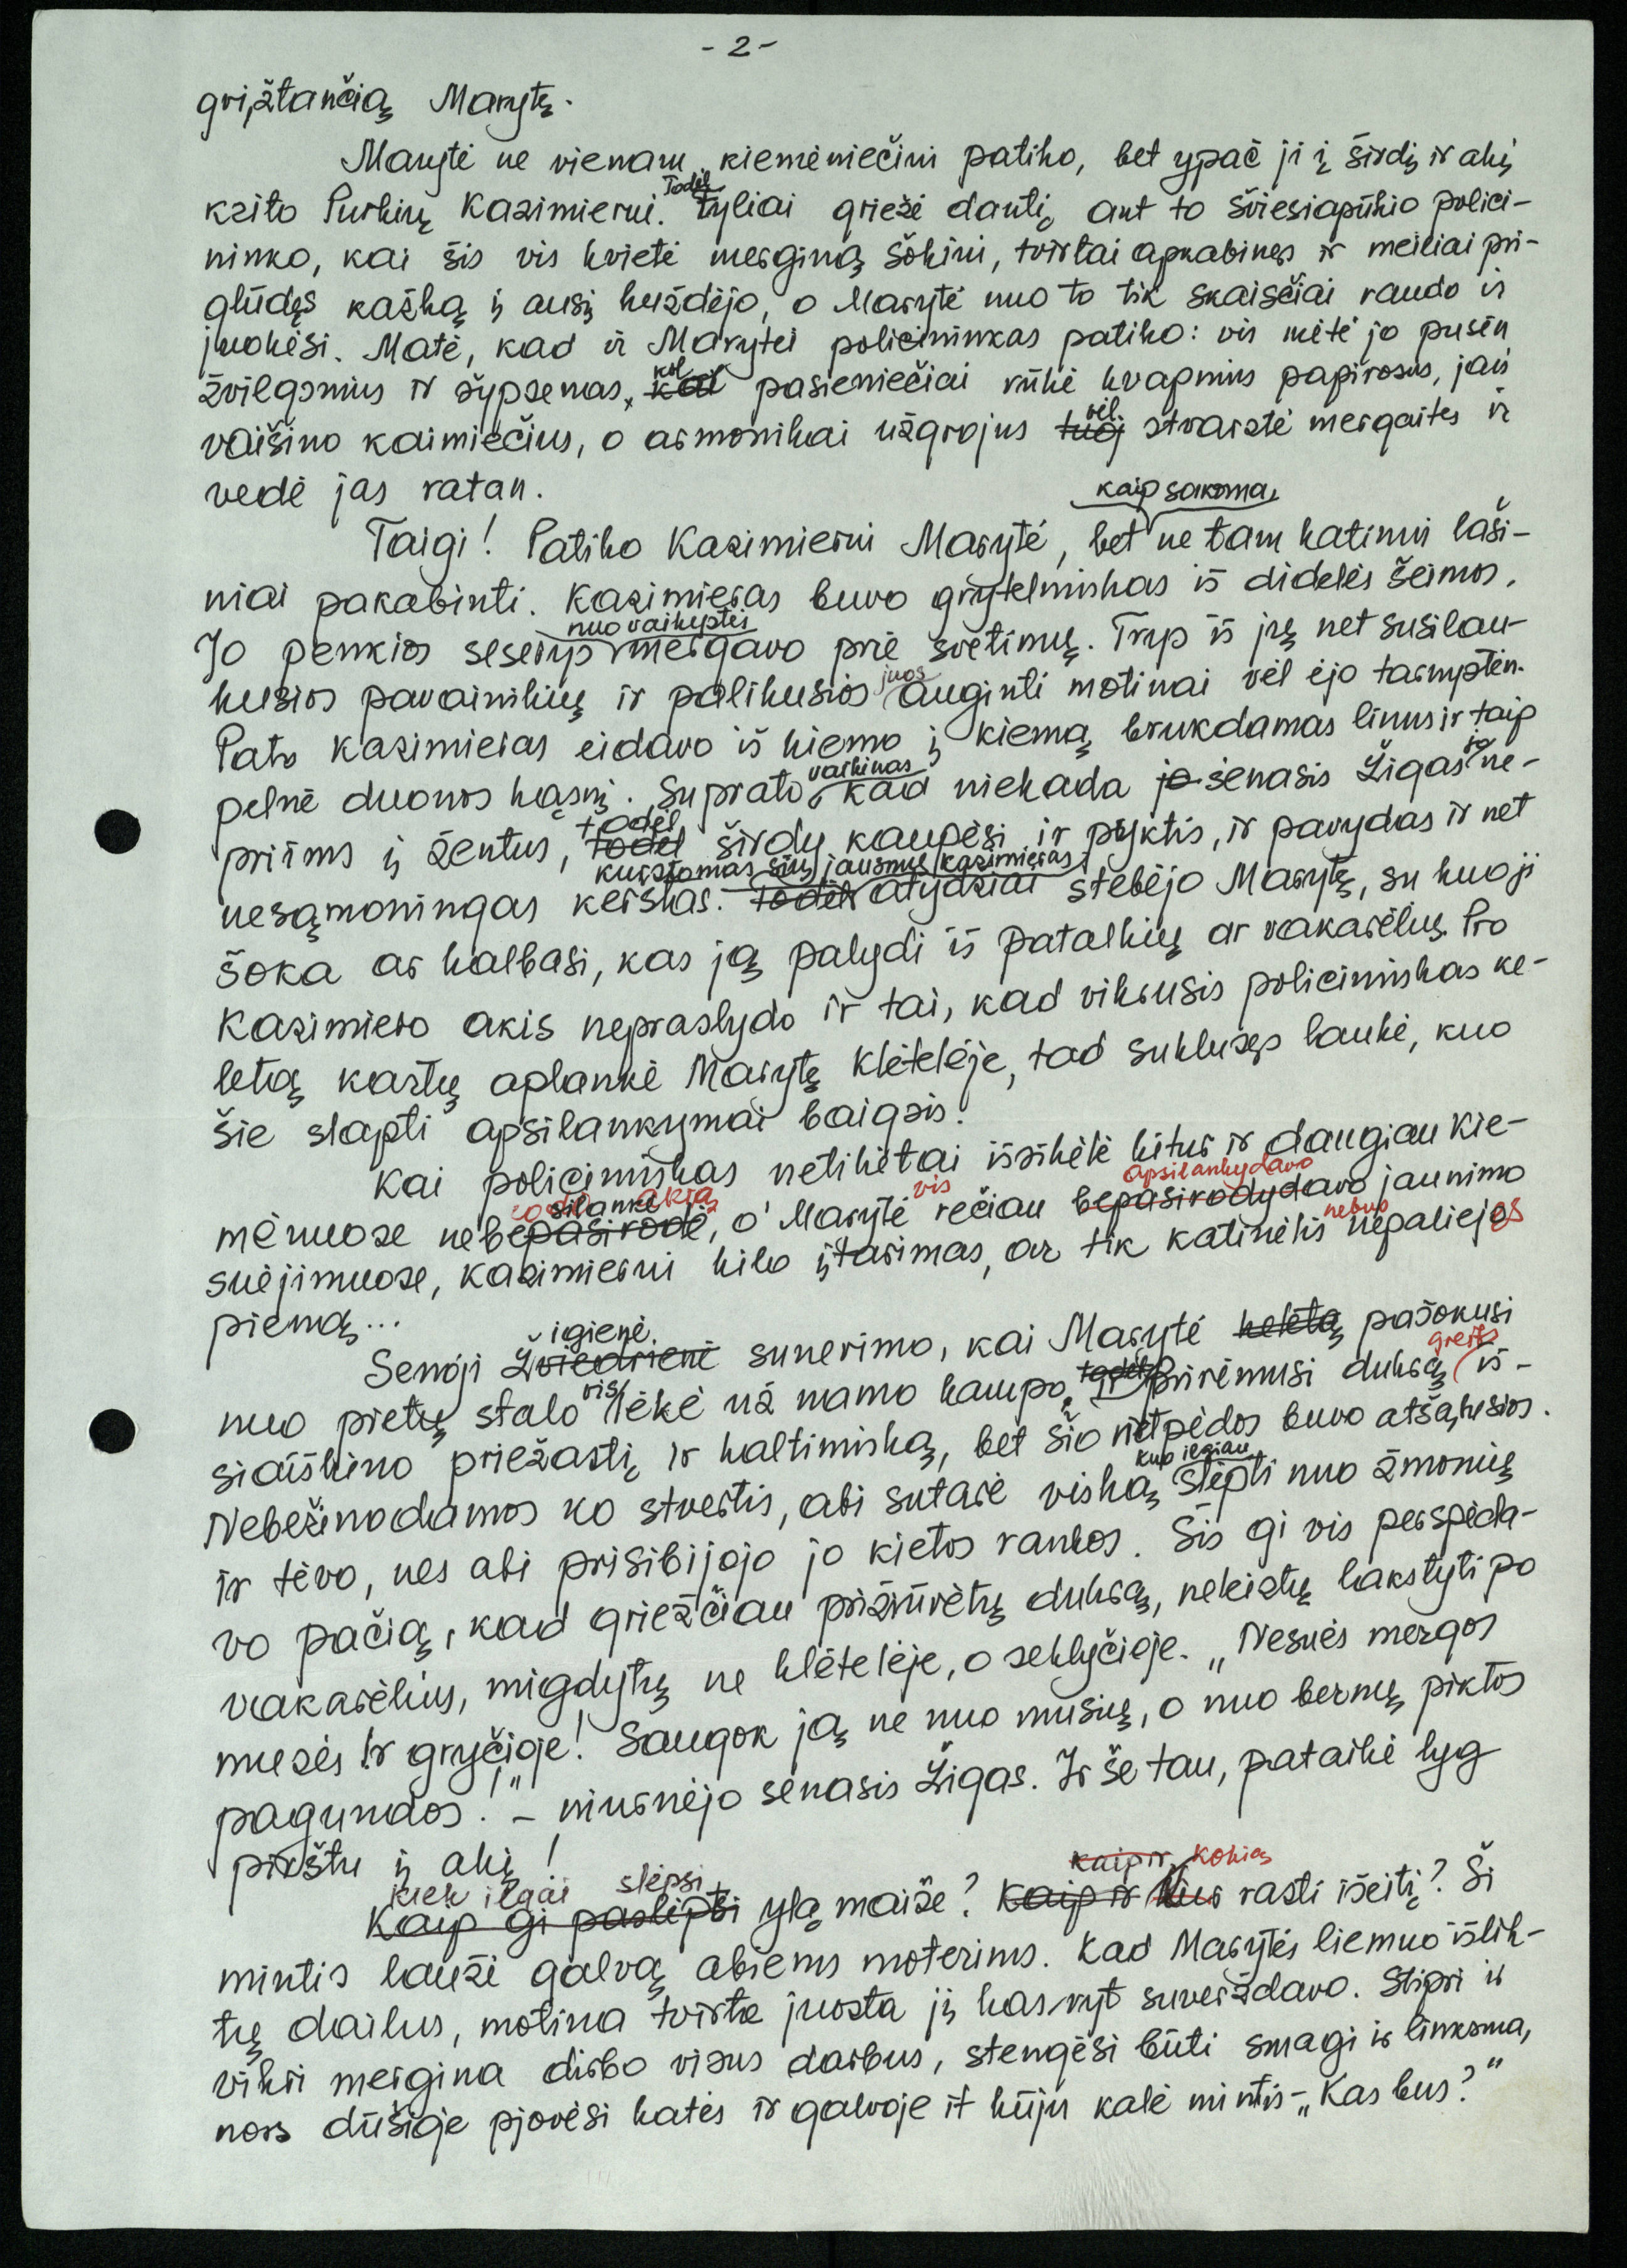 - 2 -
grįžtančią Marytę.
Marytė ne vienam kiemėniečiui patiko, bet ypač ji į širdį ir akį
krito Purkių Kazimierui. Todėl tyliai griežė dantį ant to šviesiapūkio polici-
ninko, kai šis vis kvietė merginą šokiui, tvirtai apkabinęs ir meiliai pri-
glūdęs kažką į ausį kuždėjo, o Marytė nuo to tik skaisčiai raudo ir
juokėsi. Matė, kad ir Marytei policininkas patiko: vis mėtė jo pusėn
žvilgsnius ir šypsenas, kol kai pasieniečiai rūkė kvapnius papirosus, jais
vaišino kaimiečius, o armonikai užgrojus vėl tuoj stvarstė mergaites ir
vedė jas ratan.
kaip sakoma,
Taigi! Patiko Kazimierui Marytė, bet ne tam katinui laši-
niai pakabinti. Kazimieras buvo grytelninkas iš didelės šeimos.
nuo vaikystės
Jo penkios seserys mergavo prie svetimų. Trys iš jų net susilau-
kusios pavainikių ir palikusios juos auginti motinai vėl ėjo tarnystėn.
Pats Kazimieras eidavo iš kiemo į kiemą brukdamas linus ir taip
pelnė duonos kąsnį. Suprato vaikinas, kad niekada jo senasis Žigas jo ne-
priims į žentus, todėl todėl širdy kaupėsi ir pyktis, ir pavydas ir net
kurstomas šių jausmų Kazimieras
nesąmoningas kerštas. todėl atydžiai stebėjo Marytę, su kuo ji
šoka ar kalbasi, kas ją palydi iš patalkių ar vakarėlių. Pro
Kazimiero akis nepraslydo ir tai, kad vikrusis policininkas ke-
letą kartų aplankė Marytę klėtelėje, tad suklusęs laukė, kuo
šie slapti apsilankymai baigsis.
Kai policininkas netikėtai išsikėlė kitur ir daugiau Kie-
silankė akis vis apsilankydavo
mėnuose nebepasirodė, o Marytė rečiau bepasirodydavo jaunimo
suėjimuose, Kazimierui kilo įtarimas, ar tik katinėlis nebus nepaliejęs
pieną...
Senoji Žviedrienė igienė sunerimo, kai Marytė keletą pašokusi
nuo pietų stalo vis lėkė už namo kampo. todėl Ir prirėmusi dukrą greit iš-
siaiškino priežastį ir kaltininką, bet šio net pėdos buvo atšąlusios.
Nebežinodamos ko stvertis, abi sutarė viską kuo ilgiau slėpti nuo žmonių
ir tėvo, nes abi prisibijojo jo kietos rankos. Šis gi vis perspėda-
vo pačią, kad griežčiau prižiūrėtų dukrą, neleistų lakstyti po
vakarėlius, migdytų ne klėtelėje, o seklyčioje. „Nesnės mergos
musės ir gryčioje! Saugok ją ne nuo musių, o nuo bernų piktos
pagundos!" – niurnėjo senasis Žigas. Ir še tau, pataikė lyg
pirštu į akį!
kiek ilgai slėpsi kaip ir kokią
Kaip gi paslėpti ylą maiše? Kaip ir kur rasti išeitį? Ši
mintis laužė galvą abiems moterims. Kad Marytės liemuo išlik-
tų dailus, motina tvirta juosta jį kasryt suverždavo. Stipri ir
vikri mergina dirbo visus darbus, stengėsi būti smagi ir linksma,
nors dūšioje pjovėsi katės ir galvoje it kūju kalė mintis – „Kas bus?"